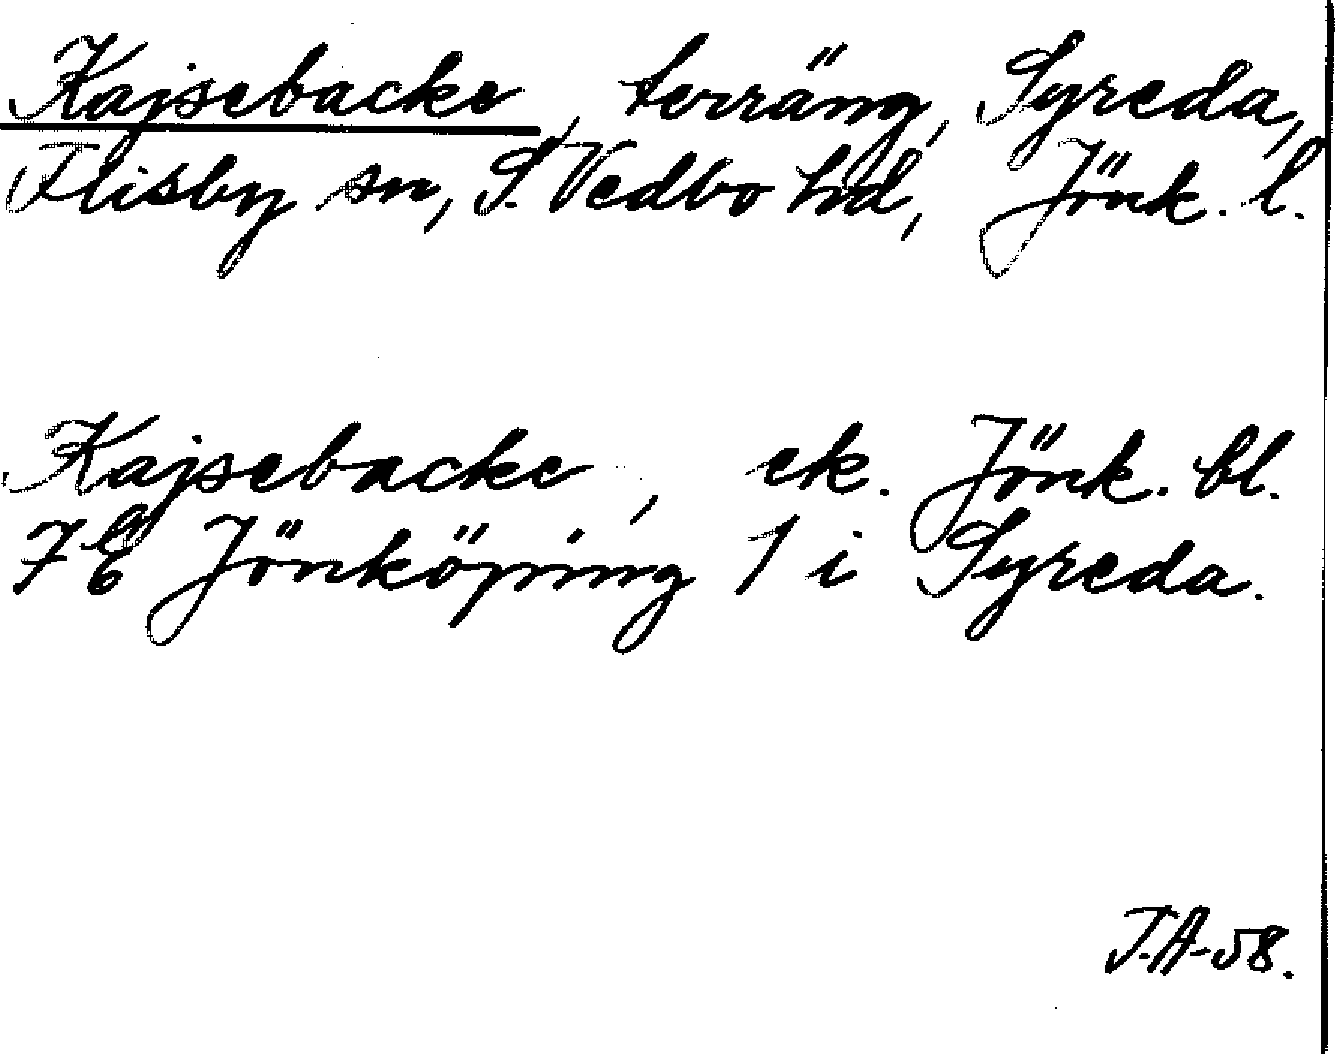 Kajsebacke, terräng, Syreda,
Flisby sn, S. Vedbo hd, Jönk. l.
Kajsebacke, ek. Jönk. bl.
7 E Jönköping 1 i Syreda.
J.A-58.